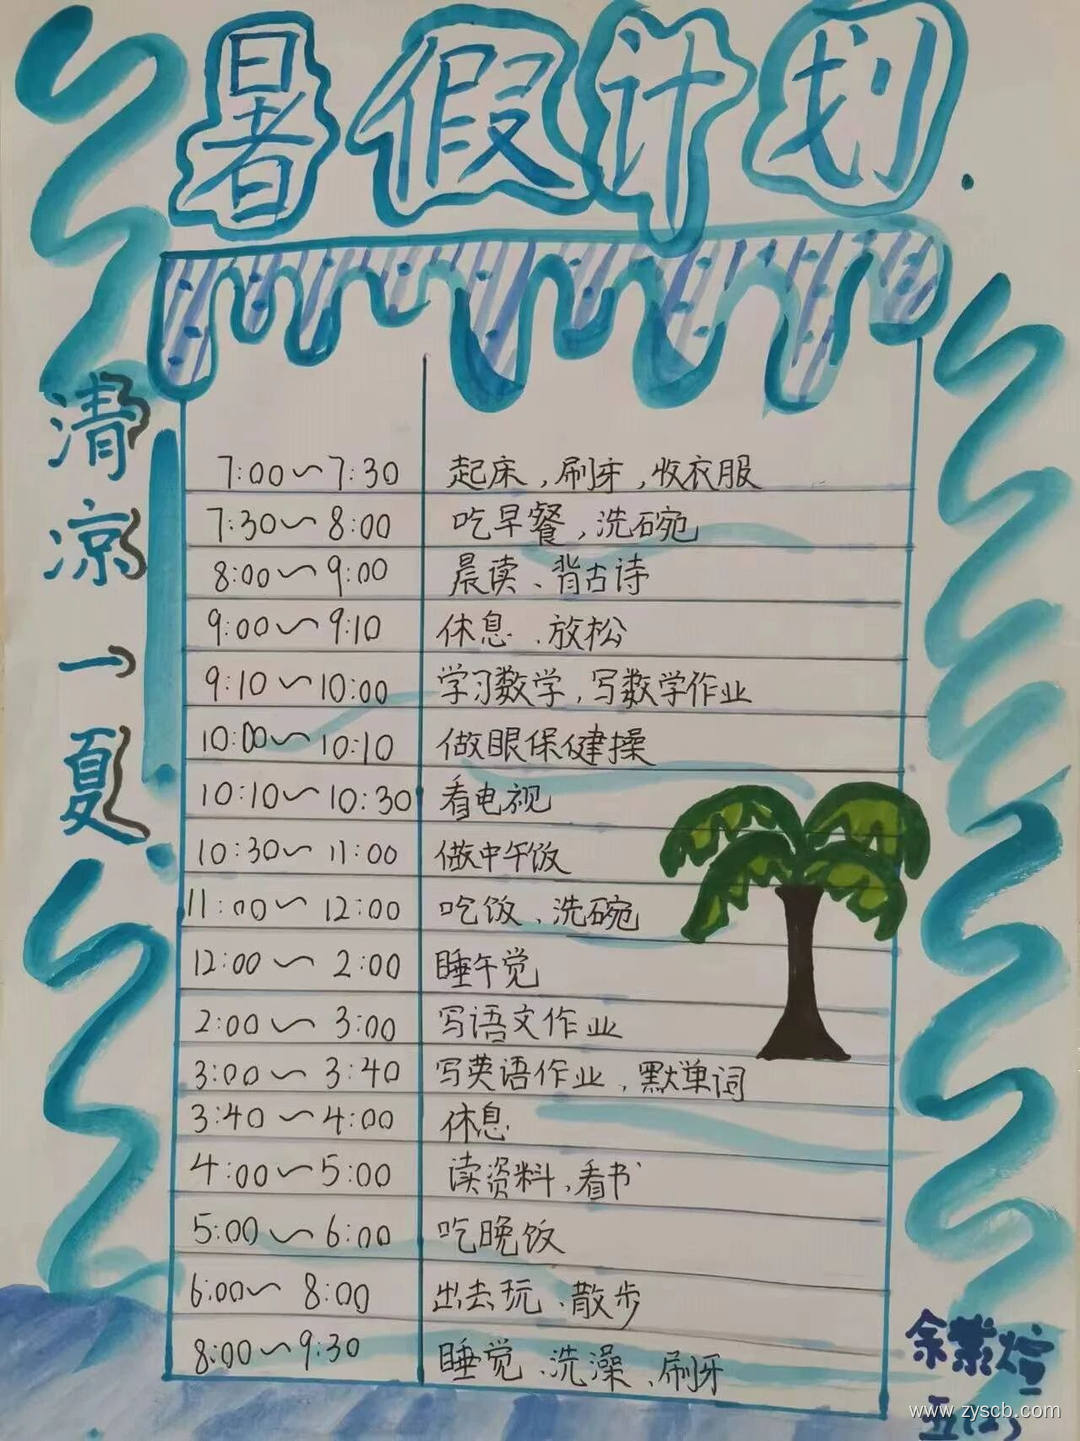 暑假计划
清凉一夏
7:00~7:30 起床,刷牙,收衣服
7:30~8:00 吃早餐,洗碗
8:00~9:00 晨读、背古诗
9:00~9:10 休息、放松
9:10~10:00 学习数学,写数学作业
10:00~10:10 做眼保健操
10:10~10:30 看电视
10:30~11:00 做中午饭
11:00~12:00 吃饭、洗碗
12:00~2:00 睡午觉
2:00~3:00 写语文作业
3:00~3:40 写英语作业,默单词
3:40~4:00 休息
4:00~5:00 读资料,看书
5:00~6:00 吃晚饭
6:00~8:00 出去玩、散步
8:00~9:30 睡觉、洗澡、刷牙
www.zyscb.com